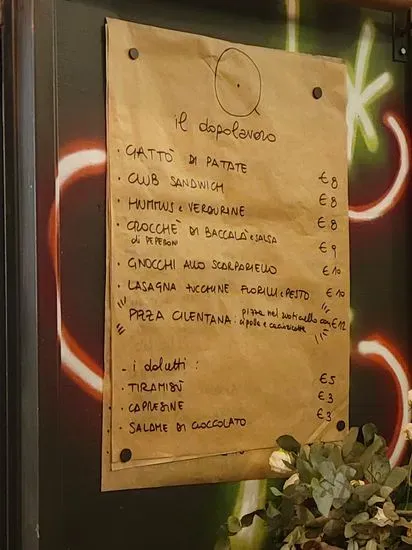 il dopolavoro
· GATTÒ DI PATATE €8
· CLUB SANDWICH €8
· HUMMUS e VERDURINE €8
· CROCCHÈ DI BACCALÀ e SALSA
di PEPERONI €9
· GNOCCHI ALLO SCARPARIELLO €10
· LASAGNA ZUCCHINE FIORILLI e PESTO €10
PIZZA CILENTANA: pizza nel ruoticello con €12
cipolle e cacioricotta
- i dolcetti :
· TIRAMISÙ €5
· CAPRESINE €3
· SALAME DI CIOCCOLATO €3